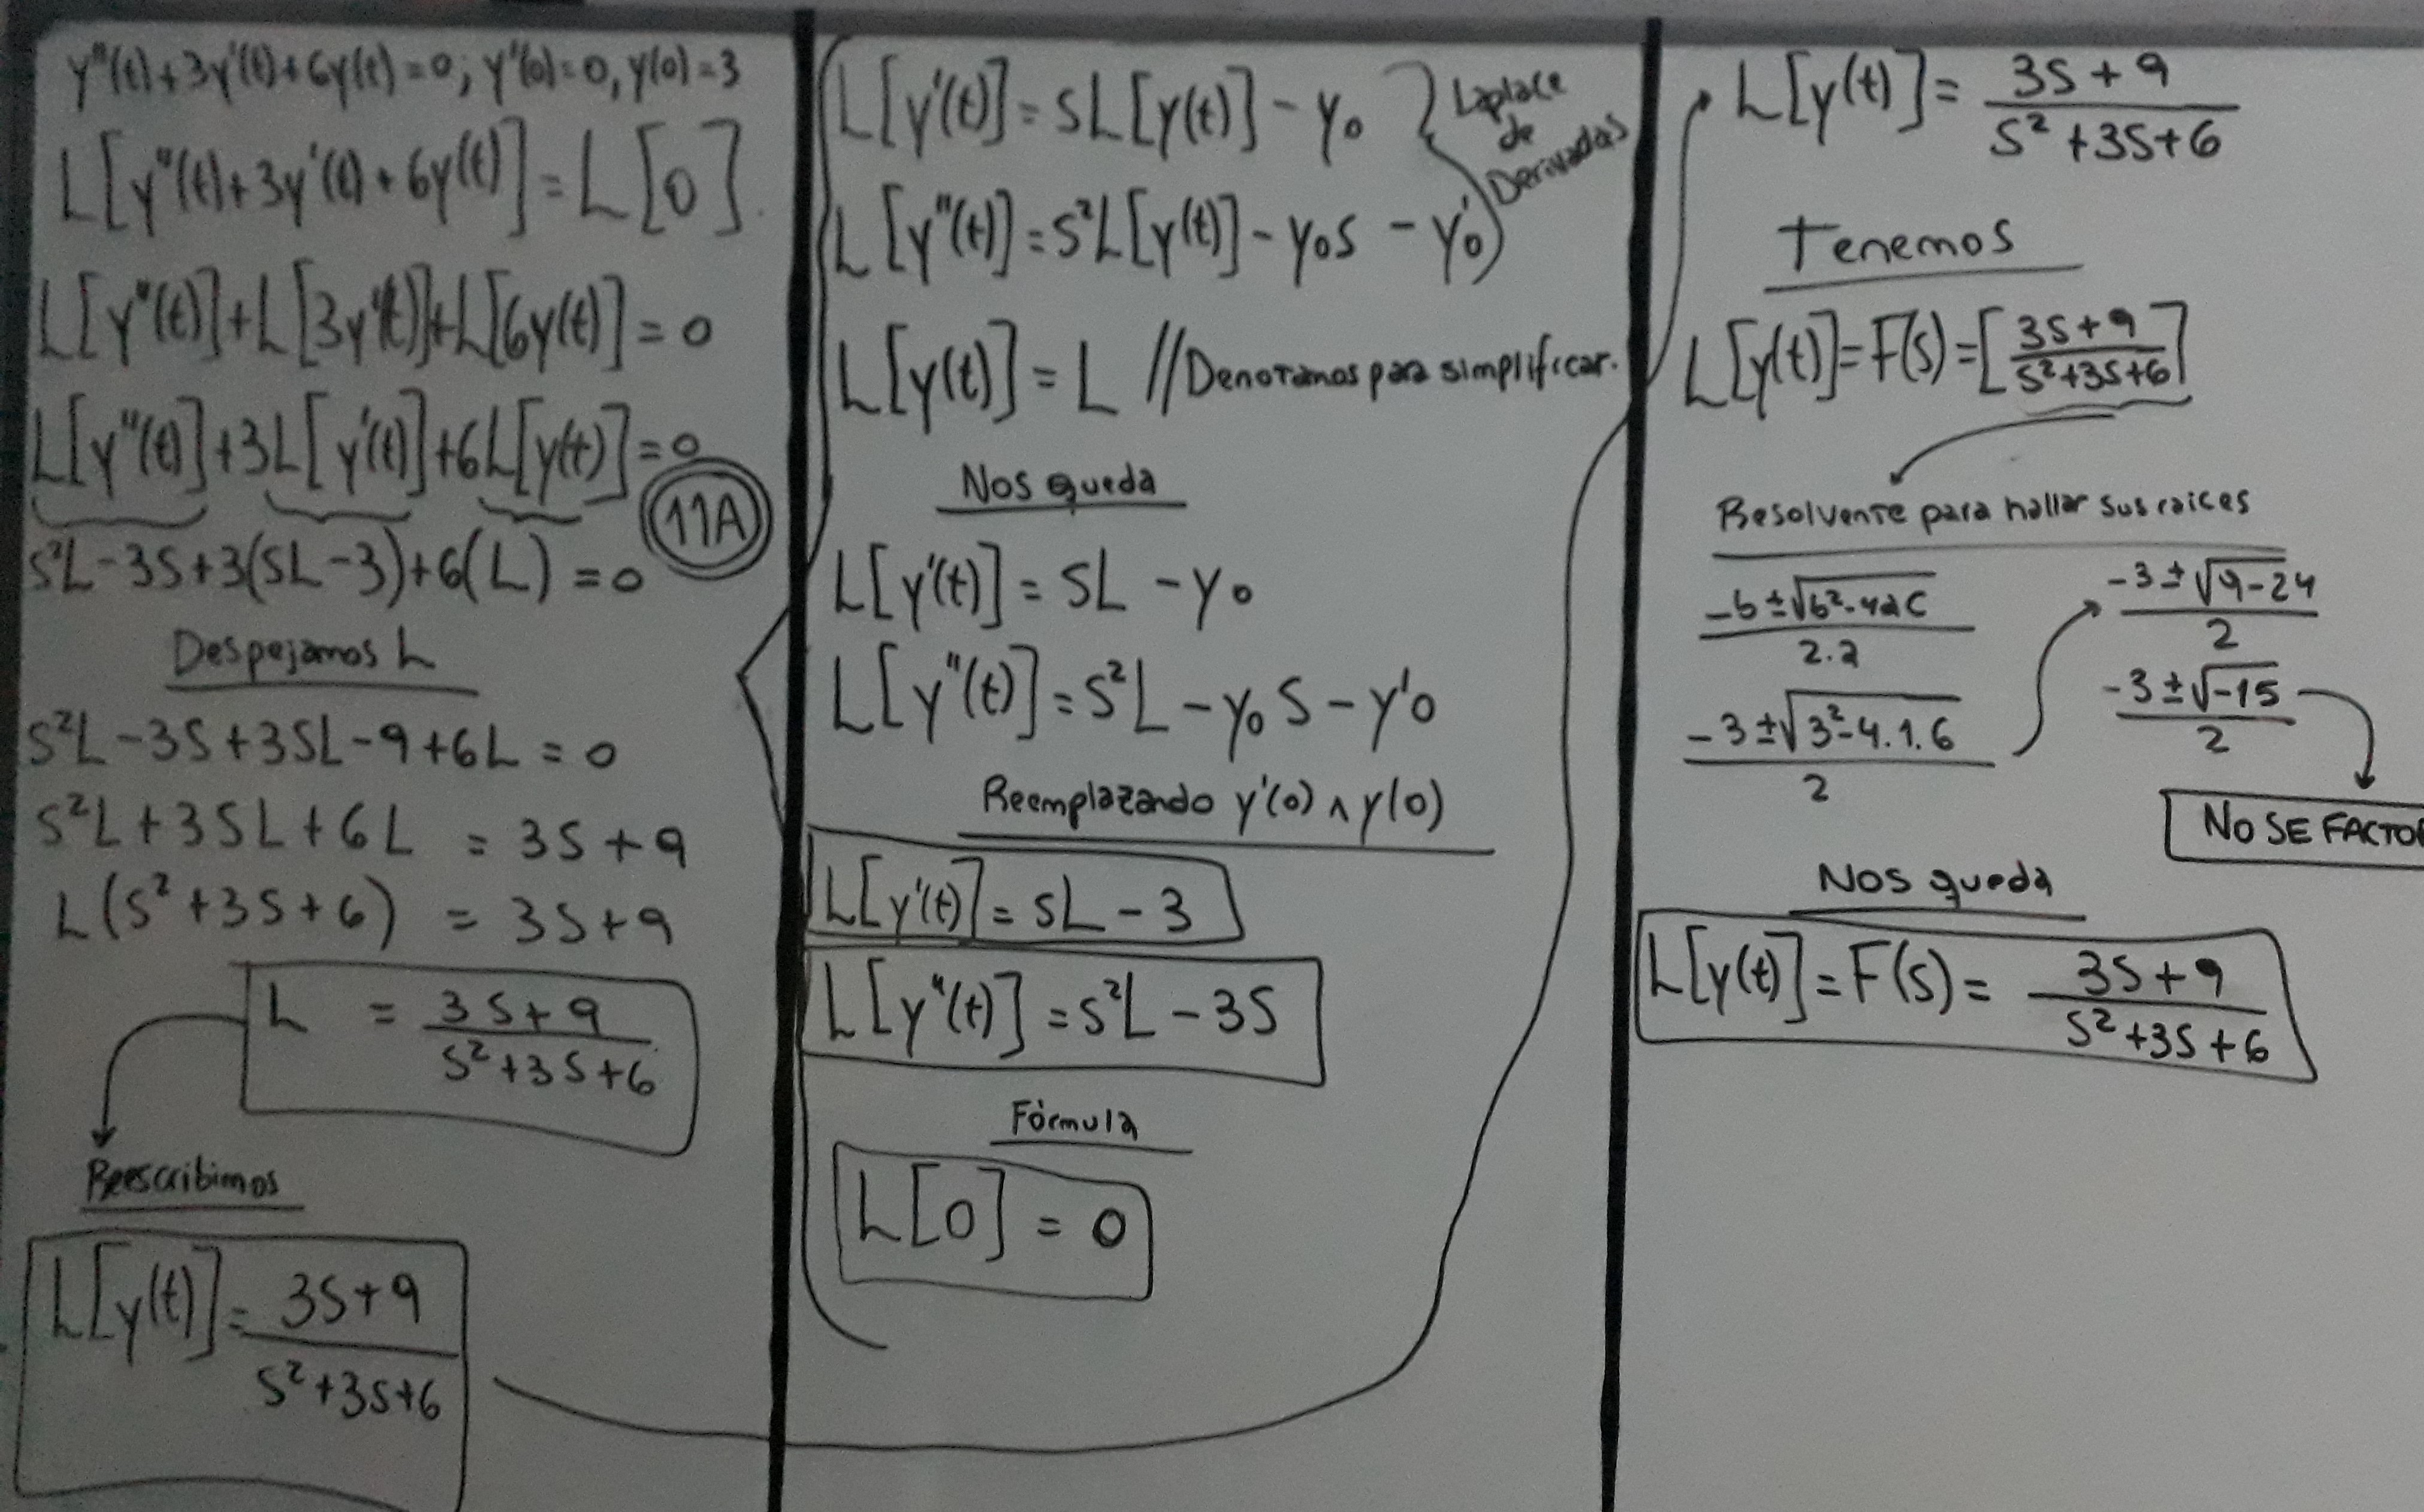 y''(t)+3y'(t)+6y(t)=0; y'(0)=0, y(0)=3
L[y''(t)+3y'(t)+6y(t)]=L[0]
L[y''(t)]+L[3y'(t)]+L[6y(t)]=0
L[y''(t)]+3L[y'(t)]+6L[y(t)]=0
11A
s²L-3s+3(sL-3)+6(L)=0
Despejamos L
s²L-3s+3sL-9+6L=0
s²L+3sL+6L = 3s+9
L(s²+3s+6) = 3s+9
L = 3s+9
s²+3s+6
Reescribimos
L[y(t)]= 3s+9
s²+3s+6
L[y'(t)]=sL[y(t)]-y₀
Laplace
de
Derivadas
L[y''(t)]=s²L[y(t)]-y₀s-y'₀
L[y(t)]=L //Denotamos para simplificar.
Nos queda
L[y'(t)]=sL-y₀
L[y''(t)]=s²L-y₀s-y'₀
Reemplazando y'(0)∧y(0)
L[y'(t)]=sL-3
L[y''(t)]=s²L-3s
Fórmula
L[0]=0
L[y(t)]= 3s+9
s²+3s+6
Tenemos
L[y(t)]=F(s)=[3s+9
s²+3s+6]
Resolvente para hallar sus raices
-b±√b²-4ac
2.a
-3±√3²-4.1.6
2
-3±√9-24
2
-3±√-15
2
NO SE FACTO
Nos queda
L[y(t)]=F(s)= 3s+9
s²+3s+6